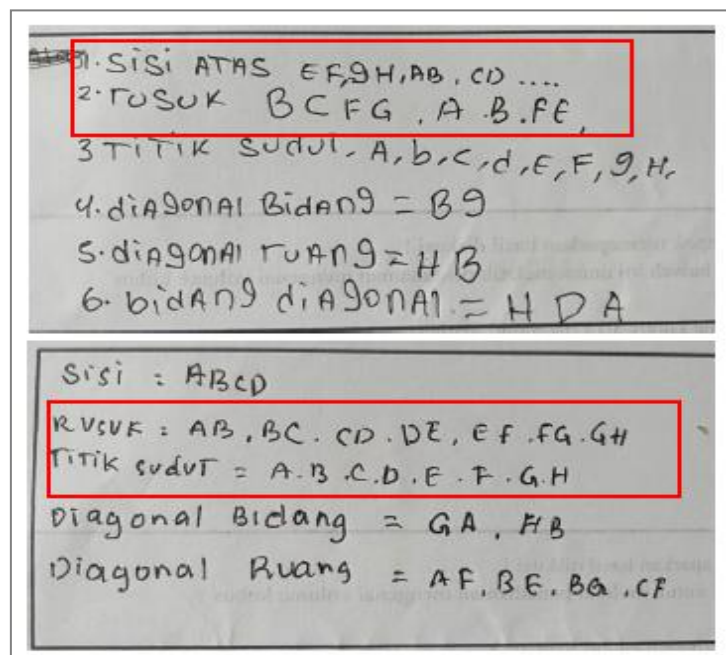 1. SiSi ATAS EF,gH,AB, CD ....
2. rUSUK BCFG, A.B.FE,
3 TiTiK SUdUT, A, b, C, d, E, F, g, H,
4. diAgonAl BidAng = Bg
5. diAgonAl rUAng = HB
6. bidAng diAgonAl = H D A
Sisi : ABCD
RUSUK = AB, BC. CD. DE, EF. FG. GH
TiTik sudut = A.B.C.D.E.F.G.H
Diagonal Bidang = GA, HB
Diagonal Ruang = AF, BE. BG, CF